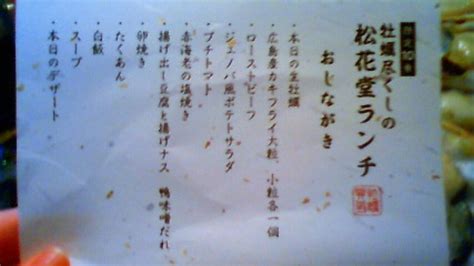 牡蠣尽くしの
松花堂ランチ
おしながき
・本日の生牡蠣
・広島産カキフライ大粒、小粒各一個
・ローストビーフ
・ジェノバ風ポテトサラダ
・プチトマト
・赤海老の塩焼き
・揚げ出し豆腐と揚げナス 鴨味噌だれ
・卵焼き
・たくあん
・白飯
・スープ
・本日のデザート